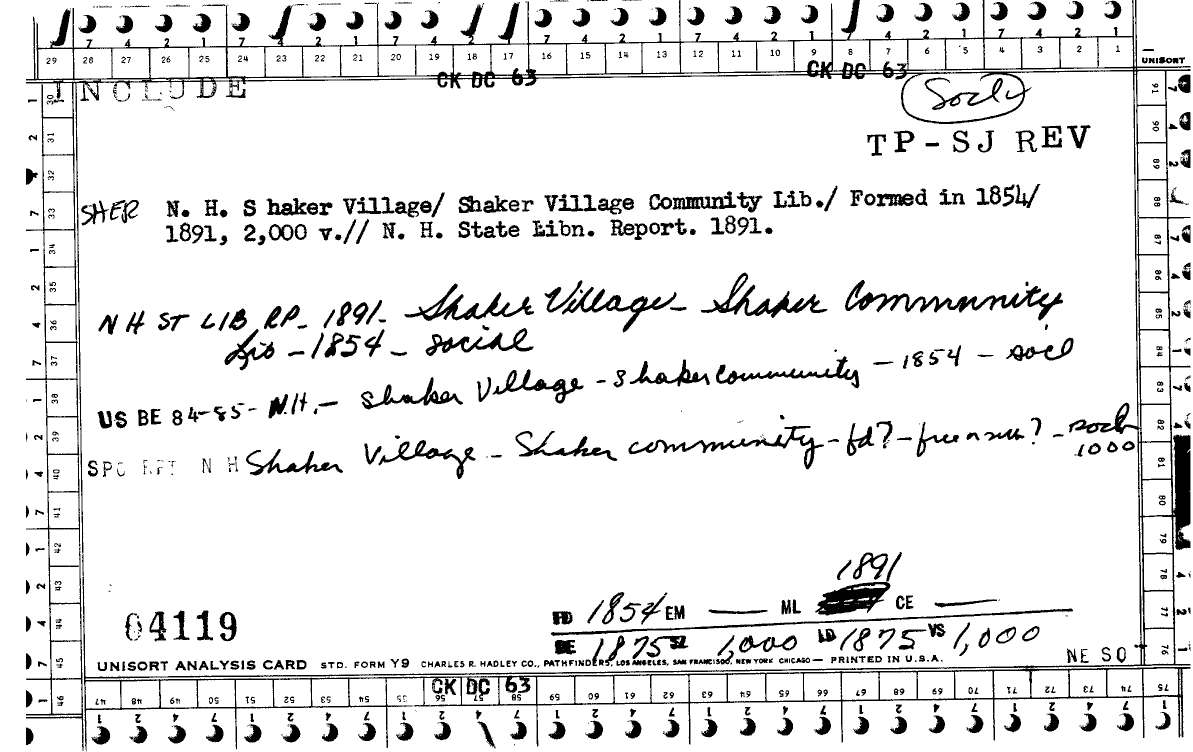 7 4 2 1 7 4 2 1 7 4 2 1 7 4 2 1 7 4 2 1 7 4 2 1
29 28 27 26 25 24 23 22 21 20 19 18 17 16 15 14 13 12 11 10 9 8 7 6 5 4 3 2 1
UNISORT
CK DC 63 CK DC 63
INCLUDE
Socly
TP-SJ REV
SHER N. H. S haker Village/ Shaker Village Community Lib./ Formed in 1854/
1891, 2,000 v.// N. H. State Libn. Report. 1891.
N H ST LIB RP - 1891 - Shaker Village - Shaker Community
Lib - 1854 - social
US BE 84-85 - N.H. - Shaker Village - Shaker community - 1854 - socl
SPC RPT N H Shaker Village - Shaker community - fd? - - socl
1000
1891
04119
FD 1854 EM — ML CE —
BE 1875 SZ 1,000 LD 1875 VS 1,000
NE SO
UNISORT ANALYSIS CARD STD. FORM Y9 CHARLES R. HADLEY CO., PATHFINDERS, LOS ANGELES, SAN FRANCISCO, NEW YORK CHICAGO — PRINTED IN U.S.A.
CK DC 63
47 48 49 50 51 52 53 54 55 56 57 58 59 60 61 62 63 64 65 66 67 68 69 70 71 72 73 74 75